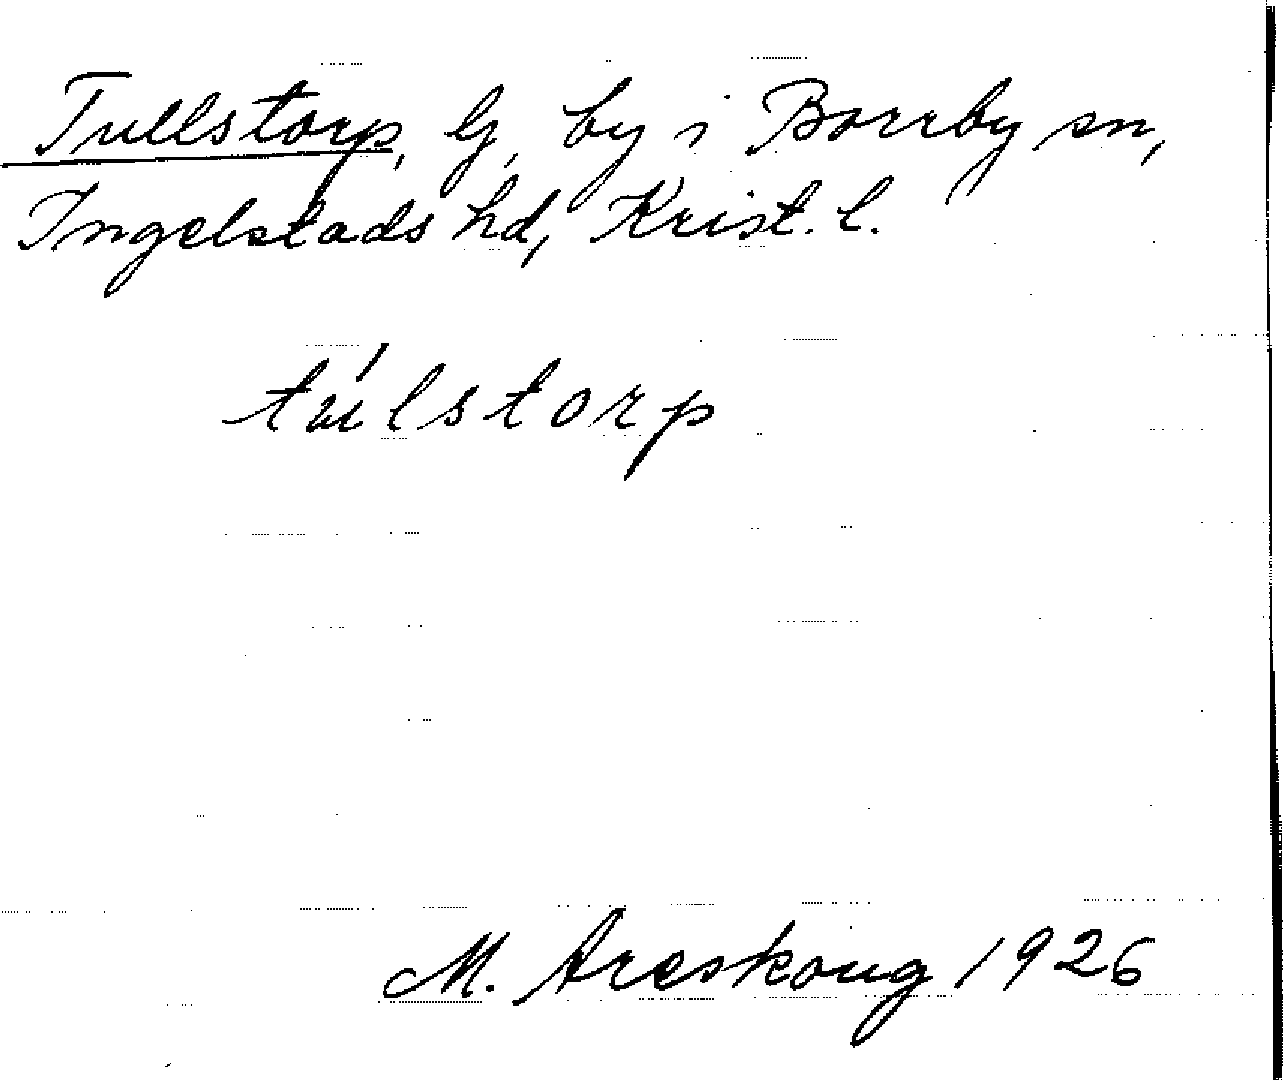 Tullstorp, G, by i Borrby sn,
Ingelstads hd, Krist. l.
túlstorp
M. Areskoug 1926